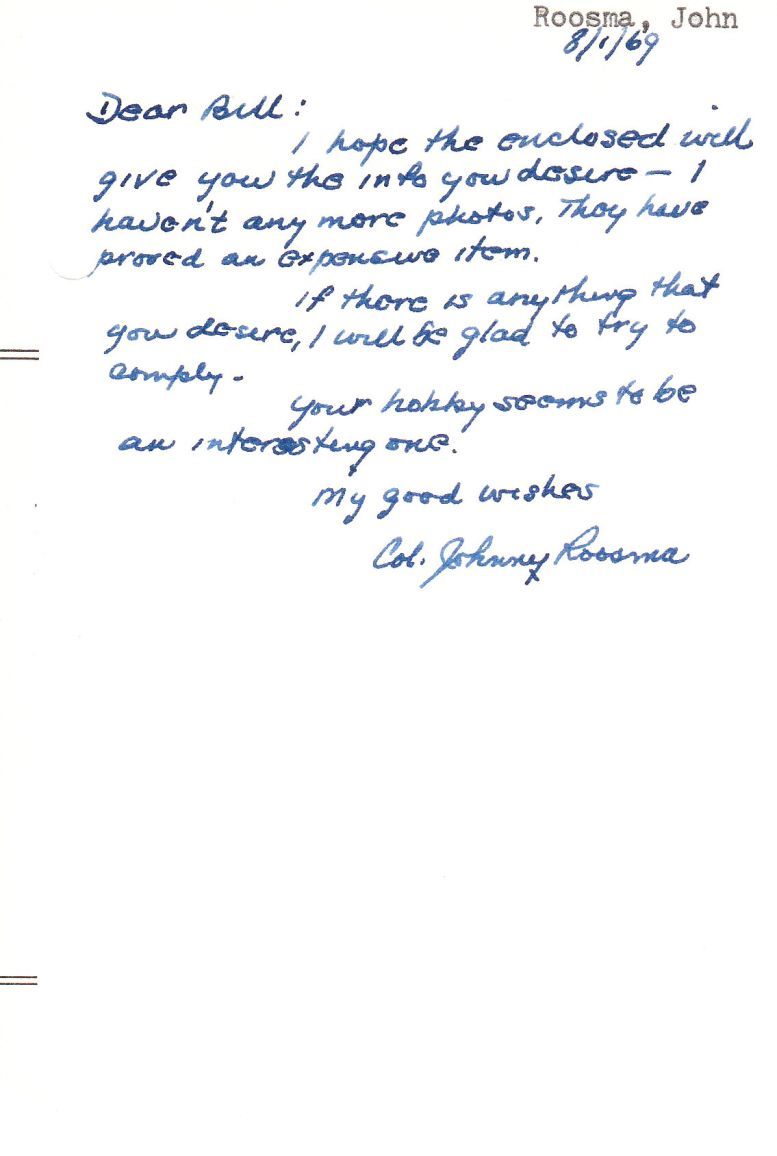 Roosma, John
8/1/69
Dear Bill:
I hope the enclosed will
give you the info you desire — I
haven't any more photos. They have
proved an expensive item.
If there is anything that
you desire, I will be glad to try to
comply.
Your hobby seems to be
an interesting one.
My good wishes
Col. Johnny Roosma